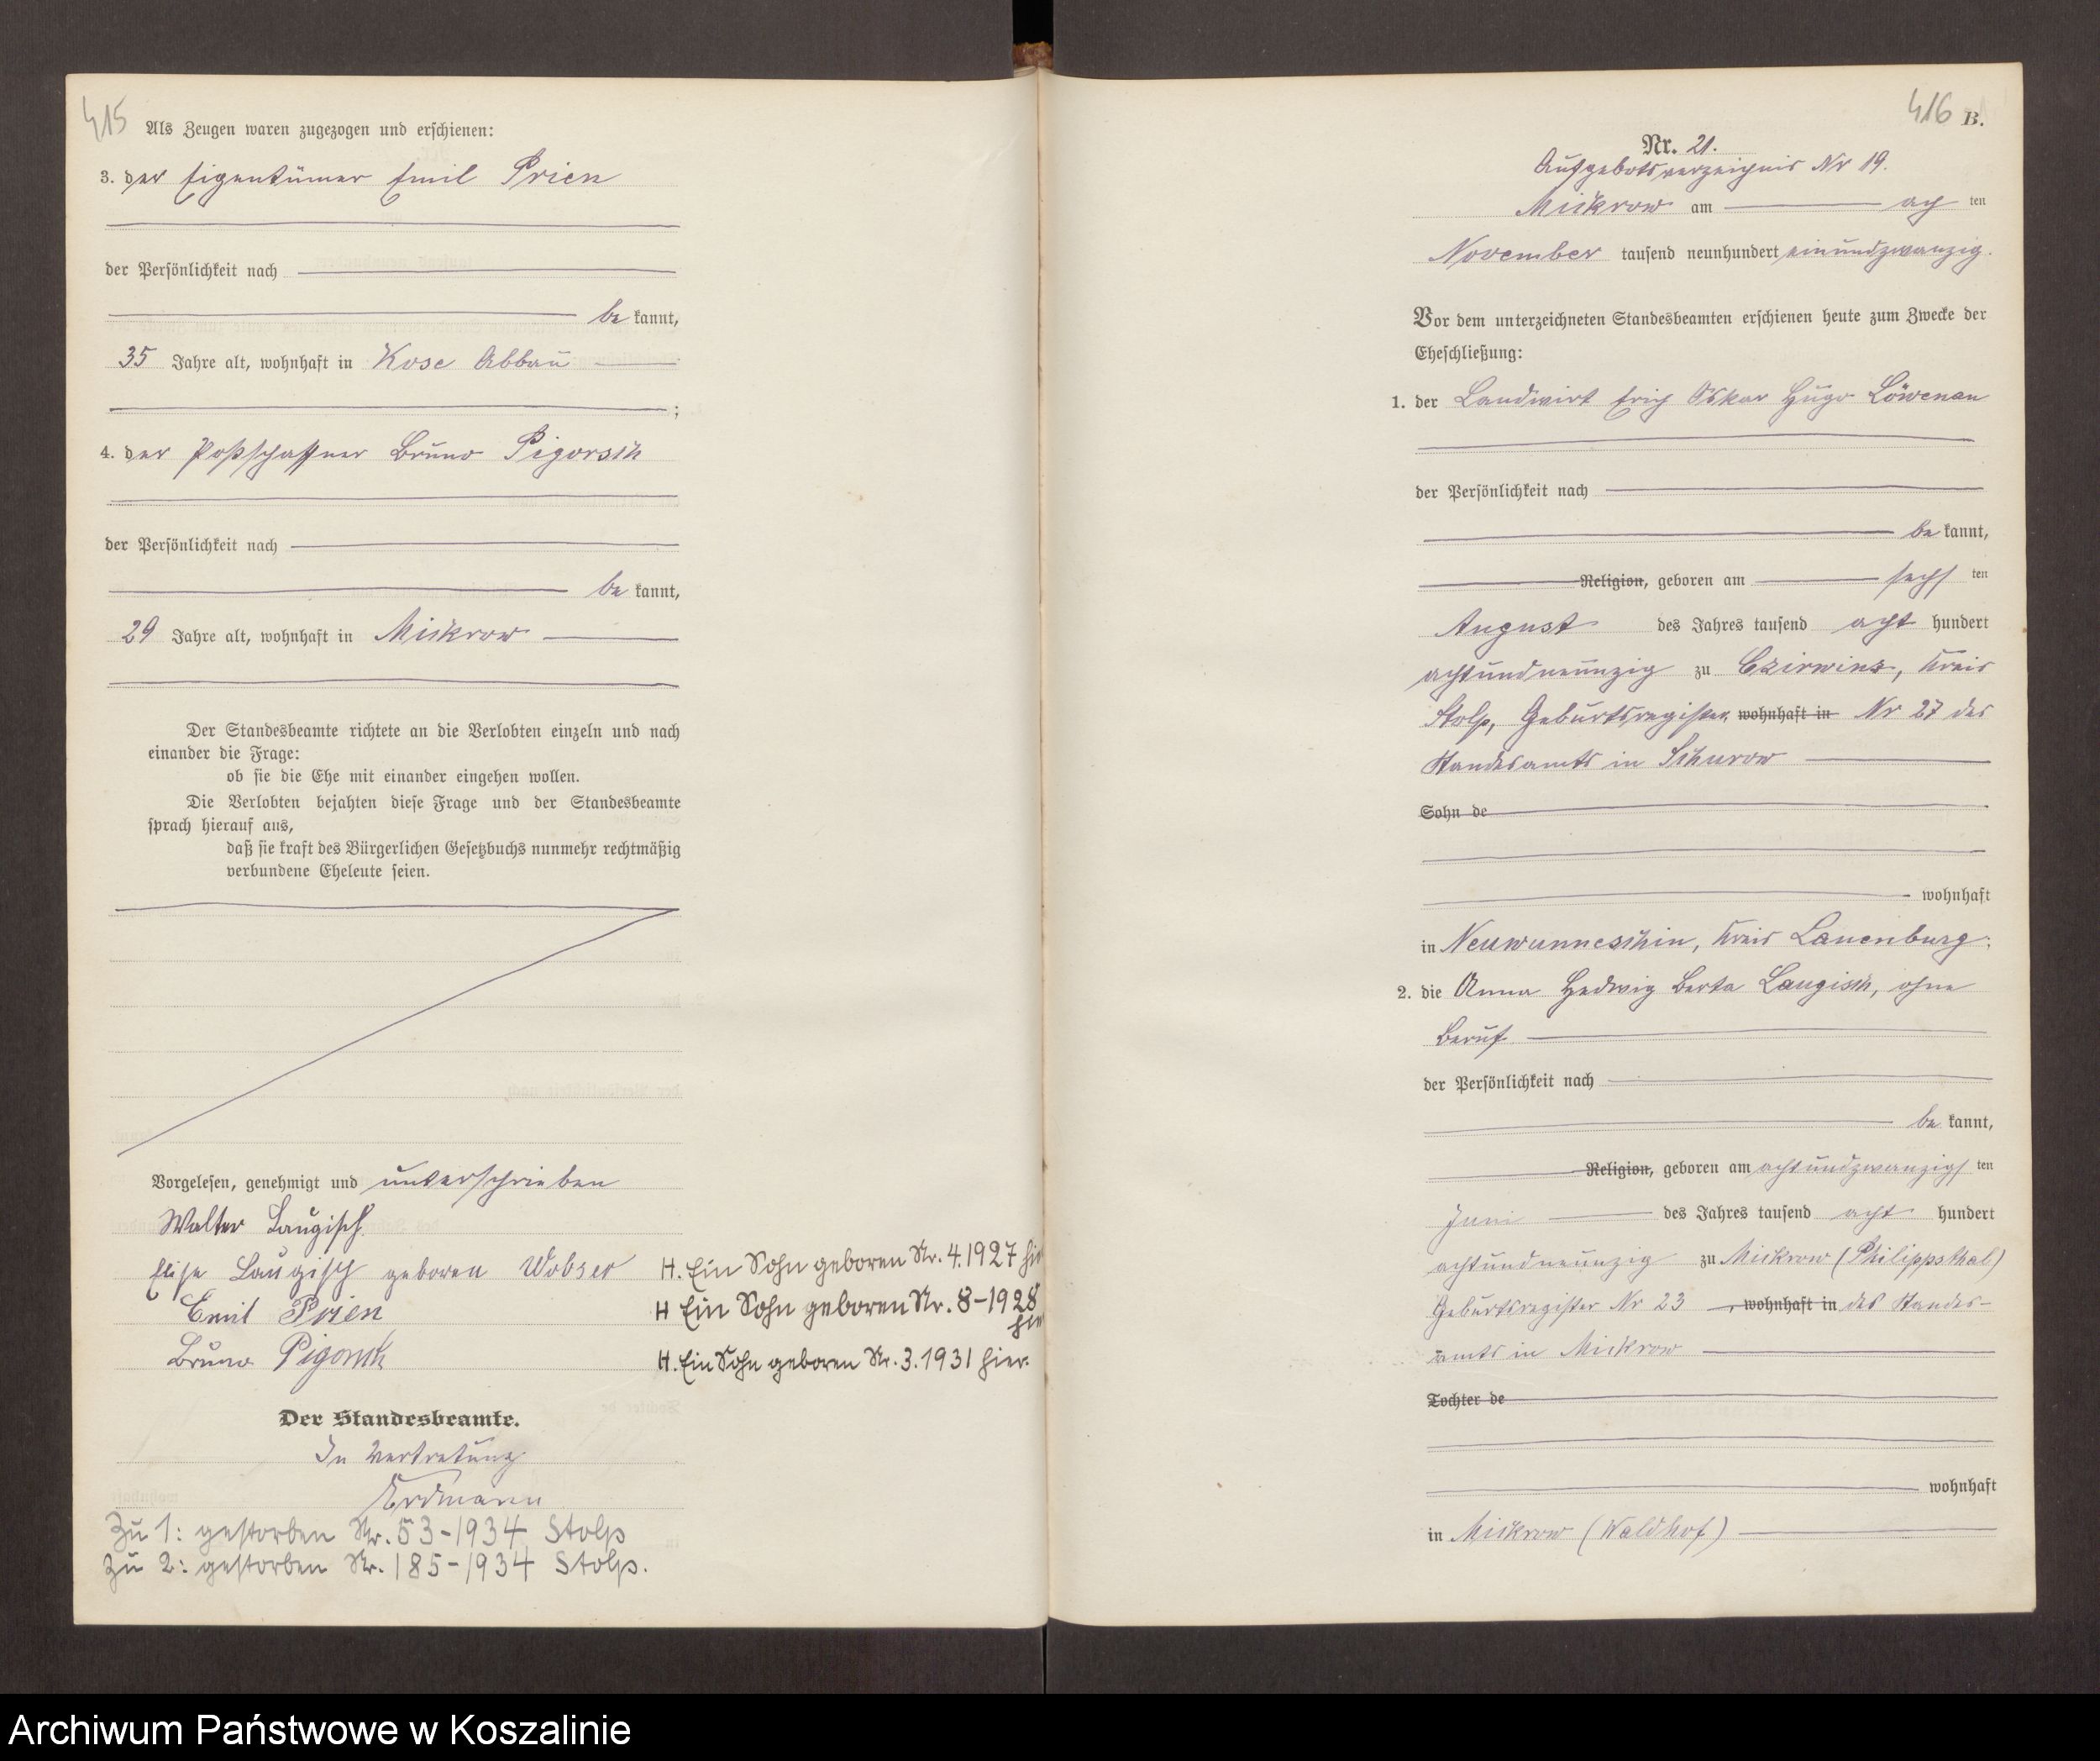 415
Als Zeugen waren zugezogen und erschienen:
3. der Eigentümer Emil Prien
der Persönlichkeit nach
be kannt,
35 Jahre alt, wohnhaft in Kose Abbau
;
4. der Postschaffner Bruno Pigorsch
der Persönlichkeit nach
be kannt,
29 Jahre alt, wohnhaft in Mickrow
Der Standesbeamte richtete an die Verlobten einzeln und nach
einander die Frage:
ob sie die Ehe mit einander eingehen wollen.
Die Verlobten bejahten diese Frage und der Standesbeamte
sprach hierauf aus,
daß sie kraft des Bürgerlichen Gesetzbuchs nunmehr rechtmäßig
verbundene Eheleute seien.
Vorgelesen, genehmigt und unterschrieben
Walter Laugisch
Elise Laugisch geboren Wobser
Emil Prien
Bruno Pigorsch
H. Ein Sohn geboren Nr. 4. 1927 hier
H Ein Sohn geboren Nr. 8-1928
hier
H. Ein Sohn geboren Nr. 3. 1931 hier.
Der Standesbeamte.
In Vertretung
Erdmann
Zu 1: gestorben Nr. 53-1934 Stolp
Zu 2: gestorben Nr. 185-1934 Stolp.
416 B.
Nr. 21.
Aufgebotsverzeichnis Nr 19.
Mickrow am ach ten
November tausend neunhundert einundzwanzig.
Vor dem unterzeichneten Standesbeamten erschienen heute zum Zwecke der
Eheschließung:
1. der Landwirt Erich Oskar Hugo Löwenau
der Persönlichkeit nach
be kannt,
Religion, geboren am sechs ten
August des Jahres tausend acht hundert
achtundneunzig zu Czirwinz, Kreis
Stolp, Geburtsregister wohnhaft in Nr 27 des
Standesamts in Schurow
Sohn de
wohnhaft
in Neuwunneschin, Kreis Lauenburg;
2. die Anna Hedwig Berta Laugisch, ohne
Beruf
der Persönlichkeit nach
be kannt,
Religion, geboren am achtundzwanzigs ten
Juni des Jahres tausend acht hundert
achtundneunzig zu Mickrow (Philippsthal)
Geburtsregister Nr 23 , wohnhaft in des Standes-
amts in Mickrow
Tochter de
wohnhaft
in Mickrow (Waldhof)
Archiwum Państwowe w Koszalinie